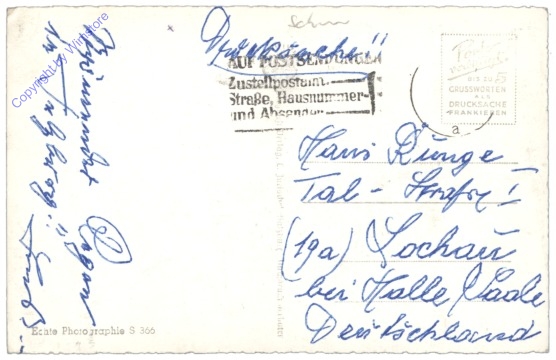 Drucksache!!
AUF POSTSENDUNGEN
Zustellpostamt,
Straße, Hausnummer
und Absender
BIS ZU 5
GRUSSWORTEN
ALS
DRUCKSACHE
FRANKIEREN
a
Hans Runge
Tal-Straße I
(19a) Lochau
bei Halle/Saale
Deutschland
in Salzburg!!
Echte Photographie S 366
Copyright by Wirtstore